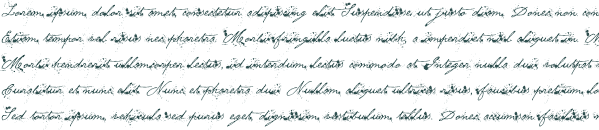 Lorem ipsum, dolor sit amet, consectetur adipiscing elit. Suspendisse ut justo diam. Donec non con
Etiam tempor vel risus nec pharetra. Morbi fringilla luctus nibh, a imperdiet nisl aliquet in.
Morbi hendrerit ullamcorper lectus, id interdum lectus commodo at. Integer nulla dui, volutpat
Curabitur et nunc elit. Nunc et pharetra dui. Nullam aliquet ultrices risus, faucibus pretium
Sed tortor ipsum, vehicula sed purus eget, dignissim vestibulum tellus. Donec accumsan facilisis